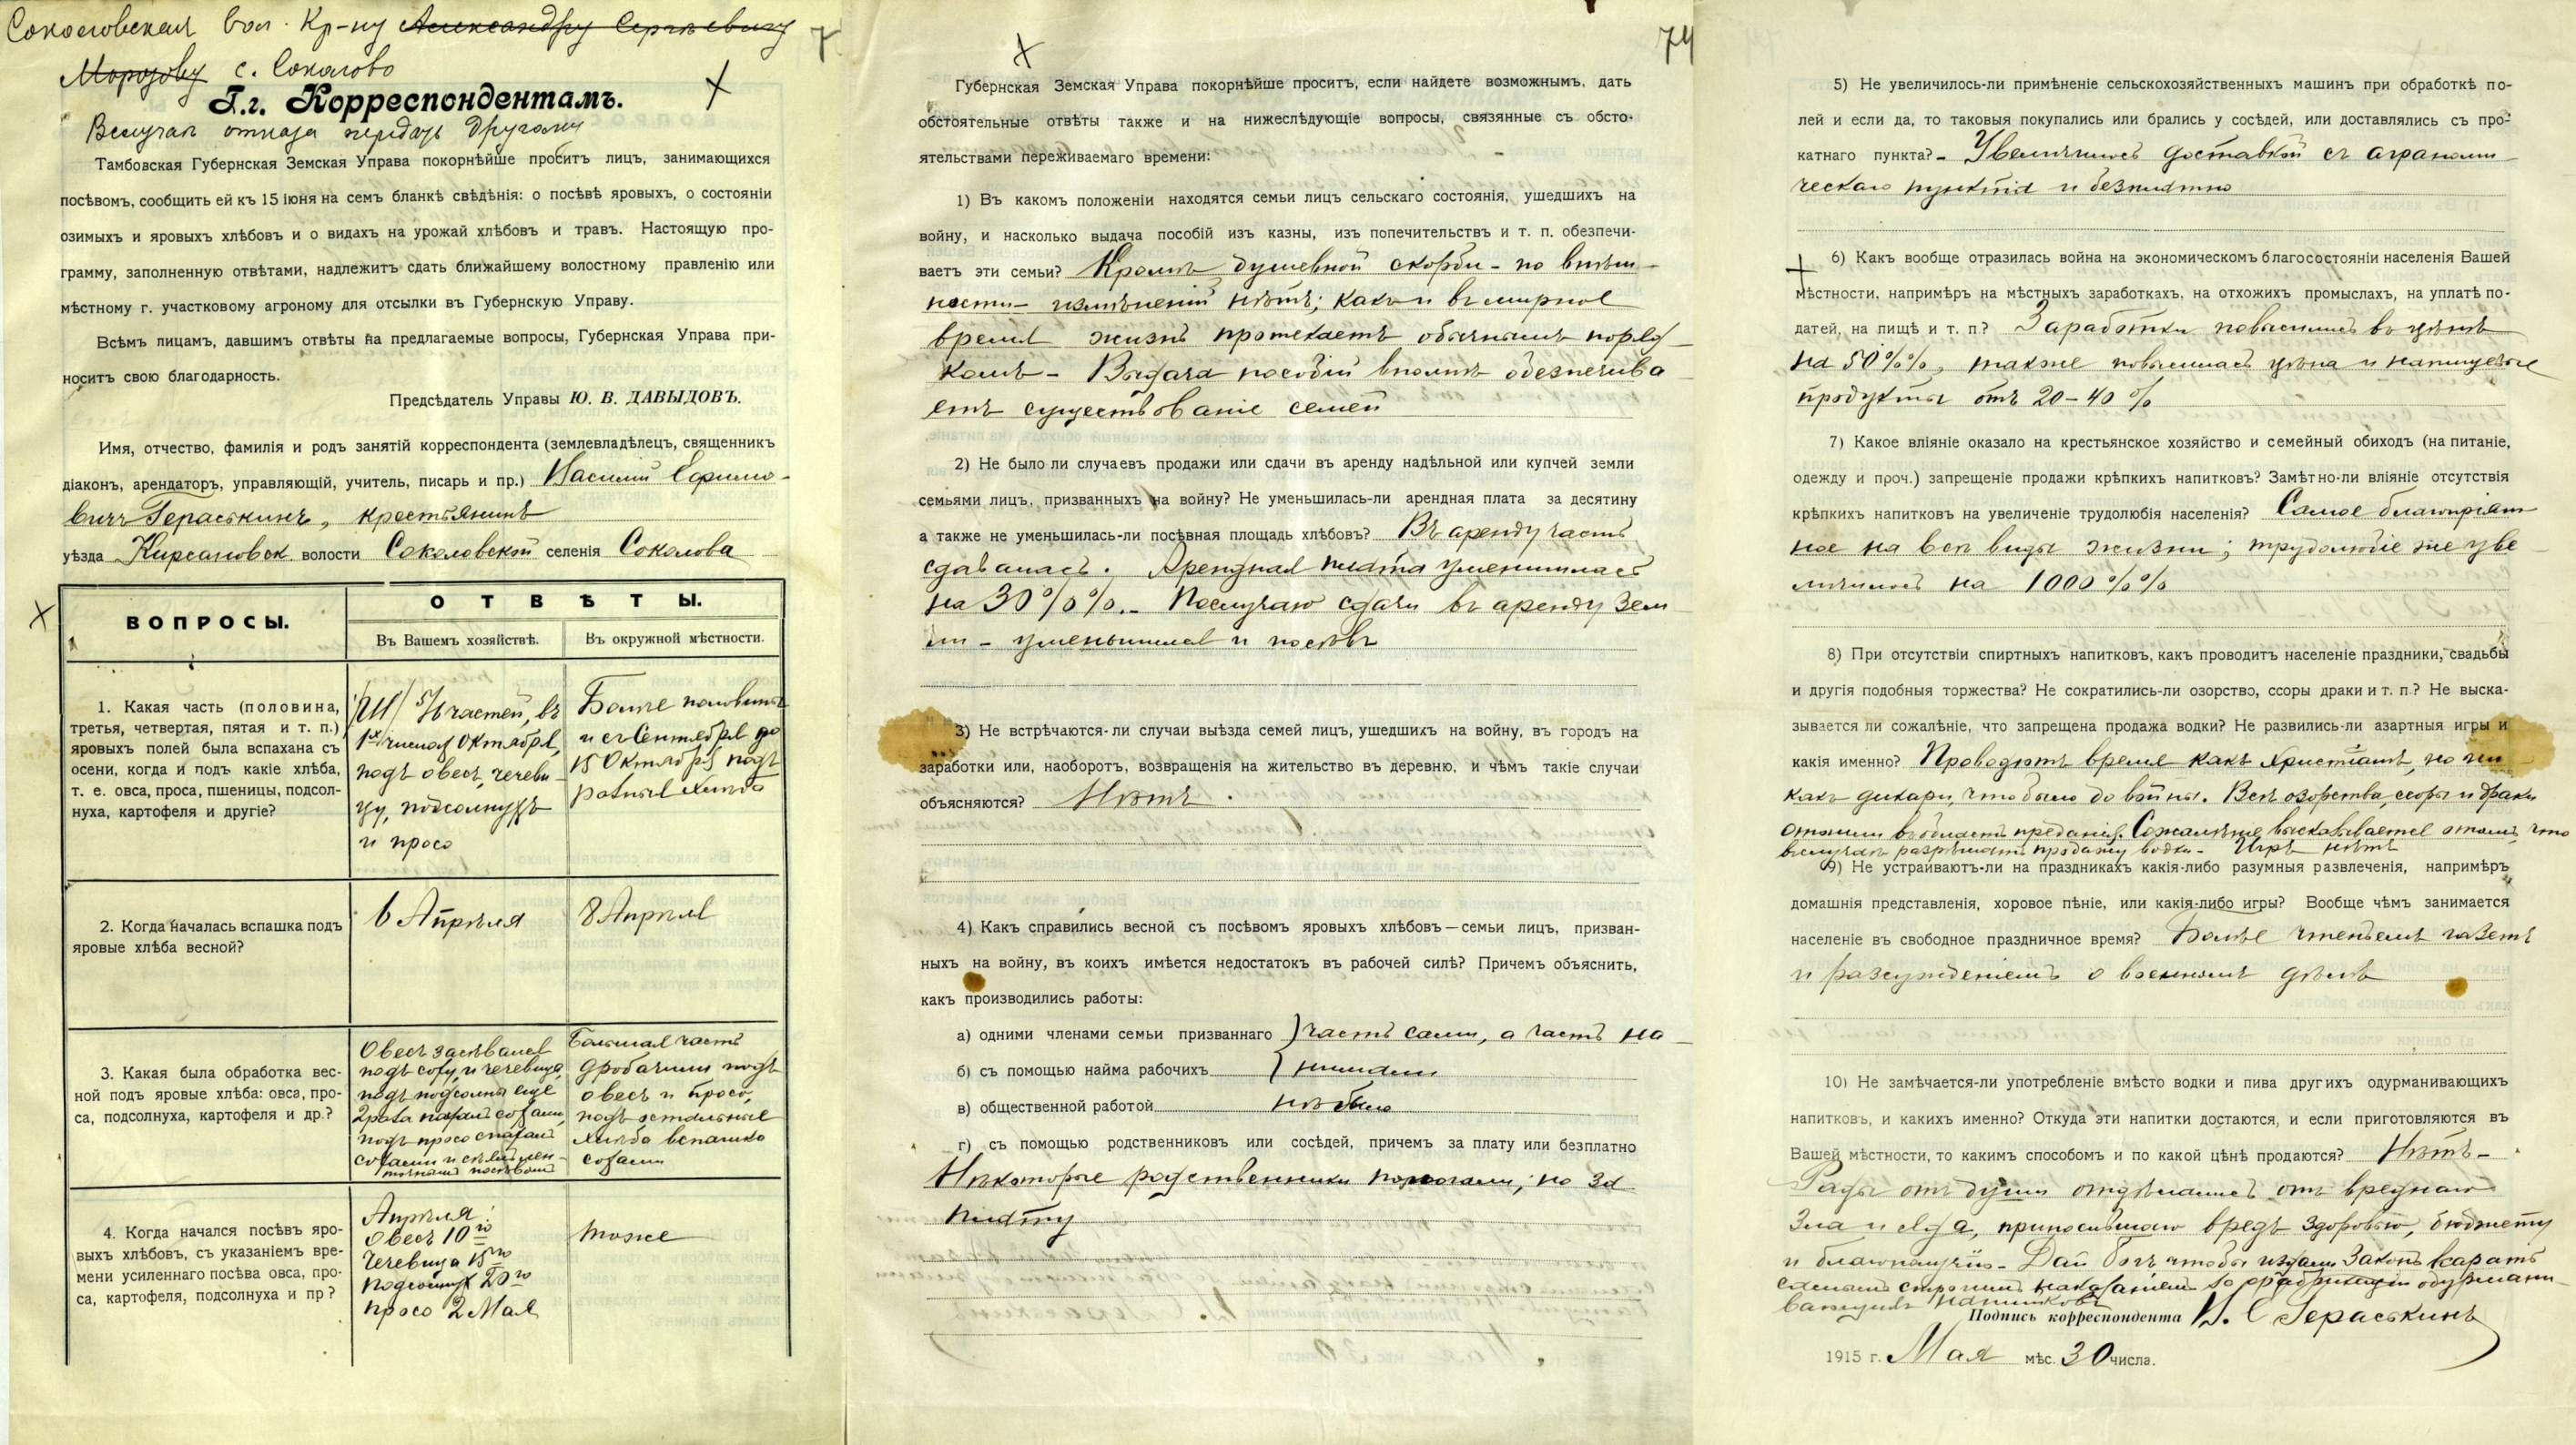 Соколовская вол. Кр-ну Александру Сергѣевичу
Морозову с. Соколово
7
Г.г. Корреспондентамъ.
Вслучаѣ отказа передать другому
Тамбовская Губернская Земская Управа покорнѣйше проситъ лицъ, занимающихся
посѣвомъ, сообщить ей къ 15 іюня на семъ бланкѣ свѣдѣнія: о посѣвѣ яровыхъ, о состояніи
озимыхъ и яровыхъ хлѣбовъ и о видахъ на урожай хлѣбовъ и травъ. Настоящую про-
грамму, заполненную отвѣтами, надлежитъ сдать ближайшему волостному правленію или
мѣстному г. участковому агроному для отсылки въ Губернскую Управу.
Всѣмъ лицамъ, давшимъ отвѣты на предлагаемые вопросы, Губернская Управа при-
носитъ свою благодарность.
Предсѣдатель Управы Ю. В. ДАВЫДОВЪ.
Имя, отчество, фамилія и родъ занятій корреспондента (землевладѣлецъ, священникъ
діаконъ, арендаторъ, управляющій, учитель, писарь и пр.) Василій
вичъ Гераськинъ, крестьянинъ
уѣзда Кирсановск волости Соколовской селенія Соколова
ВОПРОСЫ.
ОТВѢТЫ.
Въ Вашемъ хозяйствѣ.
Въ окружной мѣстности.
1. Какая часть (половина,
третья, четвертая, пятая и т. п.)
яровыхъ полей была вспахана съ
осени, когда и подъ какіе хлѣба,
т. е. овса, проса, пшеницы, подсол-
нуха, картофеля и другіе?
5/6 частей, въ
1хъ числахъ Октября,
подъ овесъ, чечеви-
цу, подсолнухъ
и просо
Болѣе половины
и съ Сентября до
15 Октября подъ
разные хлѣба
2. Когда началась вспашка подъ
яровые хлѣба весной?
6 Апрѣля
8 Апрѣля
3. Какая была обработка вес-
ной подъ яровые хлѣба: овса, про-
са, подсолнуха, картофеля и др.?
Овесъ засѣвался
подъ соху, и чечевица,
подъ подсолны еще
2 раза пахали сохами,
подъ просо спахали
сохами и
Большая часть
дробачими подъ
овесъ и просо,
подъ остальные
хлѣба вспашка
сохами
4. Когда начался посѣвъ яро-
выхъ хлѣбовъ, съ указаніемъ вре-
мени усиленнаго посѣва овса, про-
са, картофеля, подсолнуха и пр?
Апрѣля:
Овесъ 10го
Чечевица 15го
Подсолнух 20го
просо 2 Мая
тоже
74
Губернская Земская Управа покорнѣйше проситъ, если найдете возможнымъ, дать
обстоятельные отвѣты также и на нижеслѣдующіе вопросы, связянные съ обсто-
ятельствами переживаемаго времени:
1) Въ какомъ положеніи находятся семьи лицъ сельскаго состоянія, ушедшихъ на
войну, и насколько выдача пособій изъ казны, изъ попечительствъ и т. п. обезпечи-
ваетъ эти семьи? Кромѣ душевной скорби - по внѣш-
ности - измѣненій нѣтъ; какъ и въ мирное
время жизнь протекаетъ обычнымъ поряд-
комъ - Выдача пособій вполнѣ обезпечива
етъ существованіе семей
2) Не было ли случаевъ продажи или сдачи въ аренду надѣльной или купчей земли
семьями лицъ, призванныхъ на войну? Не уменьшилась-ли арендная плата за десятину
а также не уменьшилась-ли посѣвная площадь хлѣбовъ? Въ аренду часть
сдавалась. Арендная плата уменшилась
на 30%%. - Послучаю сдачи въ аренду зем
ли - уменьшился и посѣвъ
3) Не встрѣчаются-ли случаи выѣзда семей лицъ, ушедшихъ на войну, въ городъ на
заработки или, наоборотъ, возвращенія на жительство въ деревню, и чѣмъ такіе случаи
объясняются? Нѣтъ.
4) Какъ справились весной съ посѣвомъ яровыхъ хлѣбовъ—семьи лицъ, призван-
ныхъ на войну, въ коихъ имѣется недостатокъ въ рабочей силѣ? Причемъ объяснить,
какъ производились работы:
а) одними членами семьи призваннаго } часть сами, а часть на-
б) съ помощью найма рабочихъ } нимали
в) общественной работой не было
г) съ помощью родственниковъ или сосѣдей, причемъ за плату или безплатно
Нѣкоторые родственники помогали, но за
плату
5) Не увеличилось-ли примѣненіе сельскохозяйственныхъ машинъ при обработкѣ по-
лей и если да, то таковыя покупались или брались у сосѣдей, или доставлялись съ про-
катнаго пункта? - Увеличилось доставкой съ аграноми
ческаго пункта и безплатно
6) Какъ вообще отразилась война на экономическомъ благосостояніи населенія Вашей
мѣстности, напримѣръ на мѣстныхъ заработкахъ, на отхожихъ промыслахъ, на уплатѣ по-
датей, на пищѣ и т. п.? Заработки повысились въ цѣнѣ
на 50%%, также повысилась цѣна и напищевые
продукты отъ 20-40%
7) Какое вліяніе оказало на крестьянское хозяйство и семейный обиходъ (на питаніе,
одежду и проч.) запрещеніе продажи крѣпкихъ напитковъ? Замѣтно-ли вліяніе отсутствія
крѣпкихъ напитковъ на увеличеніе трудолюбія населенія? Самое благопріят
ное на всѣ виды жизни; трудолюбіе же уве
личилось на 1000%%
8) При отсутствіи спиртныхъ напитковъ, какъ проводитъ населеніе праздники, свадьбы
и другія подобныя торжества? Не сократились-ли озорство, ссоры драки и т. п.? Не выска-
зывается ли сожалѣніе, что запрещена продажа водки? Не развились-ли азартныя игры и
какія именно? Проводятъ время какъ Христіане, но не
какъ дикари, что было до войны. Всѣ озорства, ссоры и драки
отошли въ область преданія. Сожалѣніе высказывается отомъ, что
вслучаѣ разрѣшатъ продажу водки - Игръ нѣтъ
9) Не устраиваютъ-ли на праздникахъ какія-либо разумныя развлеченія, напримѣръ
домашнія представленія, хоровое пѣніе, или какія-либо игры? Вообще чѣмъ занимается
населеніе въ свободное праздничное время? Болѣе чтеніемъ газетъ
и разсужденіемъ о военномъ дѣлѣ
10) Не замѣчается-ли употребленіе вмѣсто водки и пива другихъ одурманивающихъ
напитковъ, и какихъ именно? Откуда эти напитки достаются, и если приготовляются въ
Вашей мѣстности, то какимъ способомъ и по какой цѣнѣ продаются? Нѣтъ -
Рады отъ души отдѣлались отъ вреднаго
зла и яда, приносившаго вредъ здоровью, бюджету
и благополучію - Дай Богъ чтобы издали законъ карать
самымъ строгимъ наказаніемъ за фабрикацію одурмани-
вающихъ напитковъ
Подпись корреспондента В. С Гераськинъ
1915 г. Мая мѣс. 30 числа.